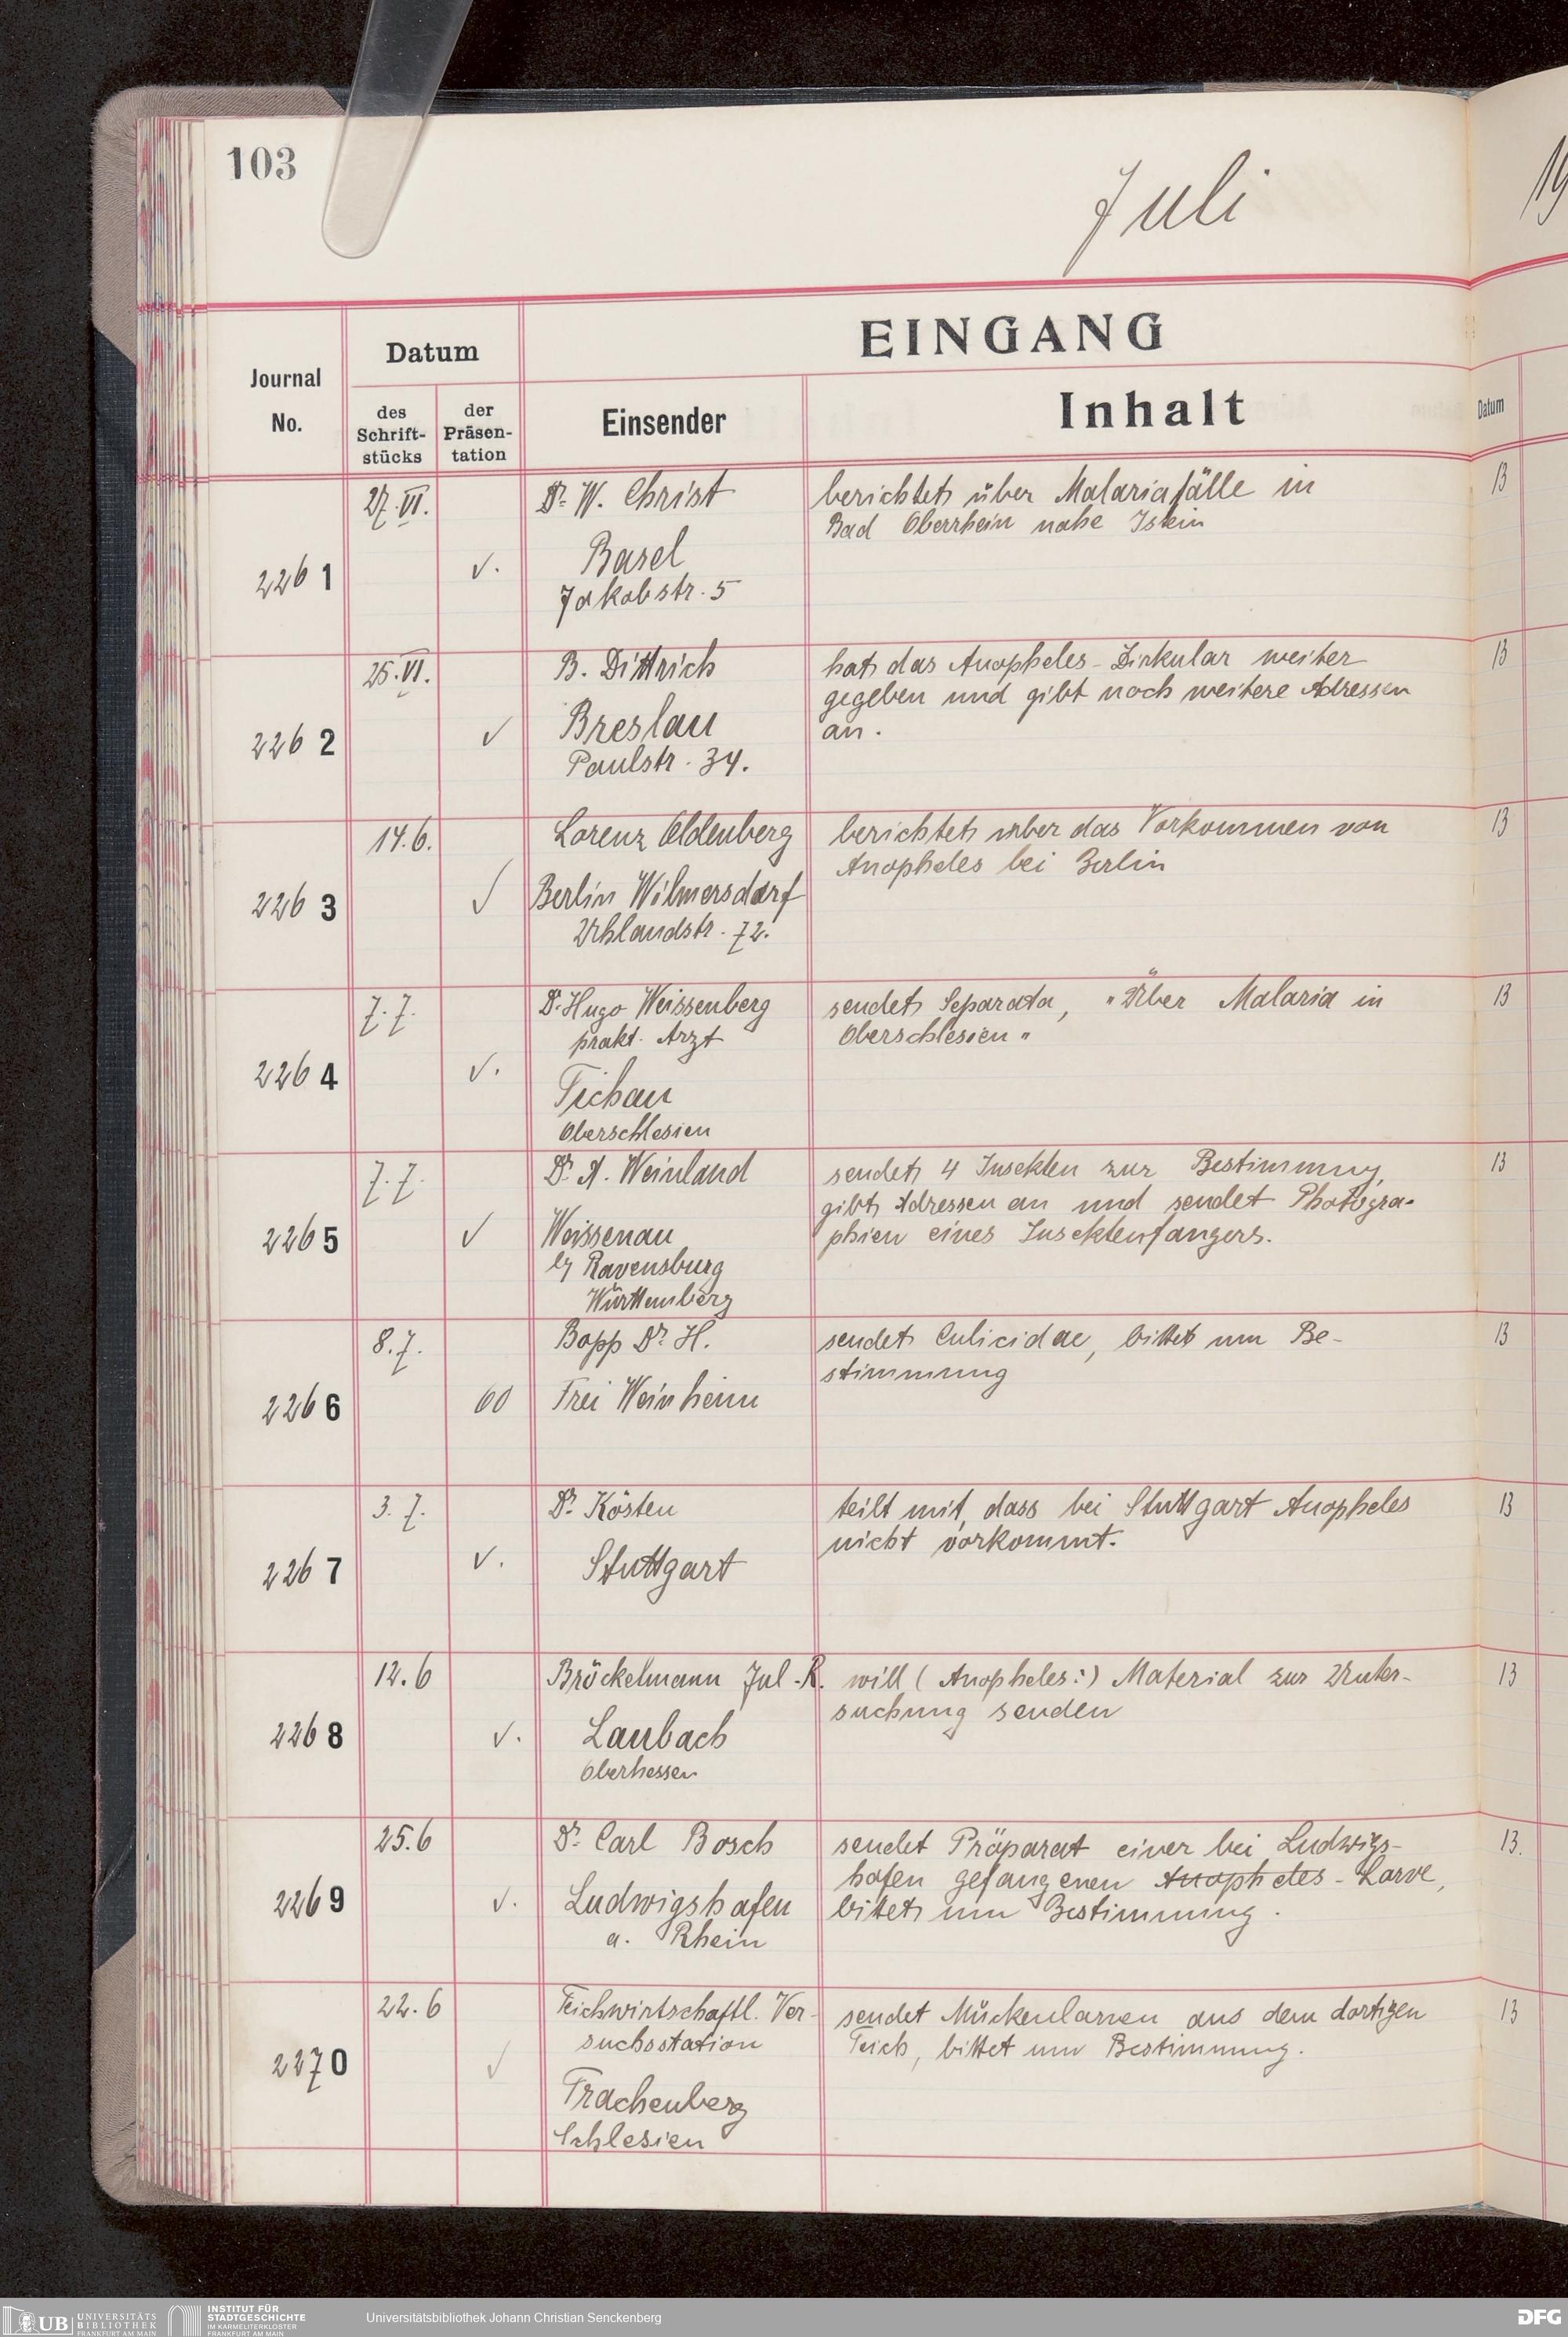 103
Juli
19
EINGANG
Journal No.
Datum
des Schrift-stücks
der Präsen-tation
Einsender
Inhalt
Datum
27.VI.
Dr. W. Christ
berichtet über Malariafälle in
13
Bad Oberrhein nahe Istein
2261
v.
Basel
Jakobstr. 5
25.VI.
B. Dittrich
hat das Anopheles-Zirkular weiter
13
gegeben und gibt noch weitere Adressen
2262
v
Breslau
an.
Paulstr. 34.
14.6.
Lorenz Oldenberg
berichtet über das Vorkommen von
13
Anopheles bei Berlin
2263
Berlin Wilmersdorf
Uhlandstr. 72.
7.7.
Dr. Hugo Weissenberg
sendet Separata, "Über Malaria in
13
prakt. Arzt
Oberschlesien"
2264
v.
Tichau
Oberschlesien
7.7.
Dr. A. Weinland
sendet 4 Insekten zur Bestimmung,
13
gibt Adressen an und sendet Photogra-
2265
v
Weissenau
phien eines Insektenfangers.
b/ Ravensburg
Württemberg
8.7.
Bopp Dr. H.
sendet Culicidae, bittet um Be-
13
stimmung
2266
60
Frei Weinheim
3.7.
Dr. Kösten
teilt mit, dass bei Stuttgart Anopheles
13
nicht vorkommt.
2267
v.
Stuttgart
12.6
Bröckelmann Jul. R.
will (Anopheles:) Material zur Unter-
13
suchung senden
2268
v.
Laubach
Oberhessen
25.6
Dr. Carl Bosch
sendet Präparat einer bei Ludwigs-
13.
hafen gefangenen Anopheles-Larve,
2269
v.
Ludwigshafen
bittet um Bestimmung.
a. Rhein
22.6
Teichwirtschaftl. Ver-
sendet Mückenlarven aus dem dortigen
13
suchsstation
Teich, bittet um Bestimmung.
2270
v
Trachenberg
Schlesien
UB UNIVERSITÄTS BIBLIOTHEK FRANKFURT AM MAIN
INSTITUT FÜR STADTGESCHICHTE IM KARMELITERKLOSTER FRANKFURT AM MAIN
Universitätsbibliothek Johann Christian Senckenberg
DFG